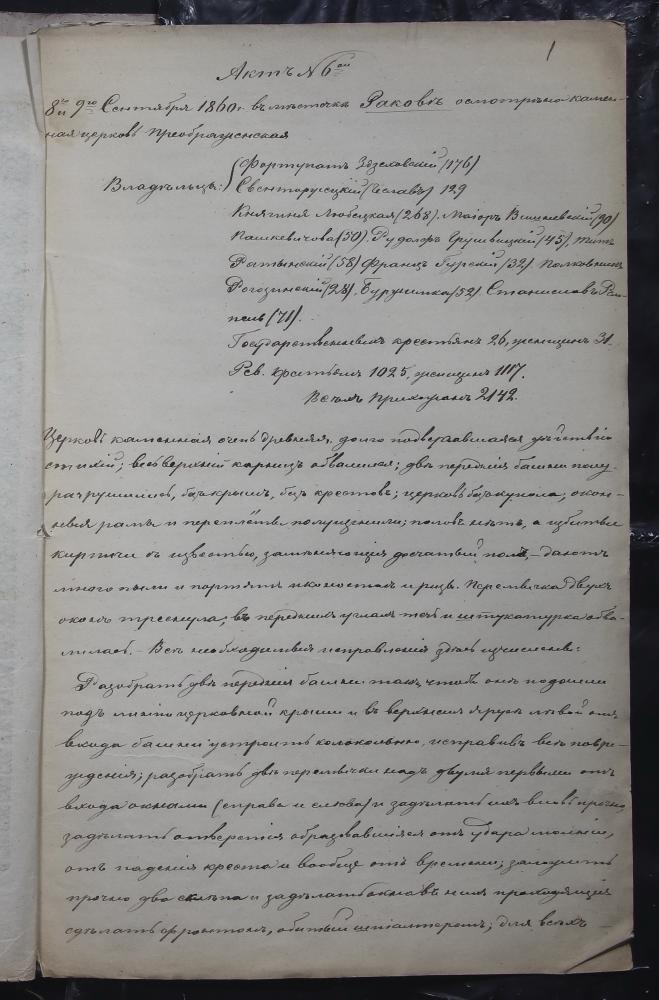 1
Актъ N 6ой
8го и 9го Сентября 1860г. въ мѣстечкѣ Раковѣ осмотрѣна камен-
ная церковь Преображенская
Владѣльцы: Фортунатъ Здзеховскій (176)
Свенторжецкій (Чеславъ) 129
Княгиня Любецкая (268). Маіоръ Вишневскій (90)
Пашкевичова (50). Рудольфъ Грушвицкій (45). Титъ
Ратынскій (58) Францъ Гурскій (32). Полковникъ
Рогозинскій (28). (52). Станиславъ
(71).
Государственныхъ крестьянъ 26, женщинъ 31.
Рев. крестьянъ 1025, женщинъ 1117.
Всѣхъ прихожанъ 2142.
Церковь каменная очень древняя, долго подвергавшаяся дѣйствію
стихій; весь верхній карнизъ обвалился; двѣ переднія башни полу-
разрушились, безъ крышъ, безъ крестовъ; церковь безъ купола; окон-
ныя рамы и переплеты полусгнили; половъ нѣтъ, а избитые
кирпичи съ известью, замѣняющія досчатый полъ, - даютъ
много пыли и портятъ иконостасъ и ризы. Перемычка двухъ
оконъ треснула; въ переднихъ углахъ течь и штукатурка обва-
лилась. - Всѣ необходимыя исправленія здѣсь изчислены:
Разобрать двѣ переднія башни такъ, чтобы онѣ подошли
подъ линію церковной крыши и въ верхнемъ ярусѣ лѣвой отъ
входа башни устроить колокольню, исправивъ всѣ повре-
жденія; разобрать двѣ перемычки надъ двумя первыми отъ
входа окнами (справа и слѣва) и задѣлать ихъ вновь прочно,
задѣлать отверстія образовавшіяся отъ удара молніи,
отъ паденія креста и вообще отъ времени;
прочно два и задѣлать окна въ нихъ проходящія
сдѣлать фронтонъ, обитый шталтеромъ; для всѣхъ